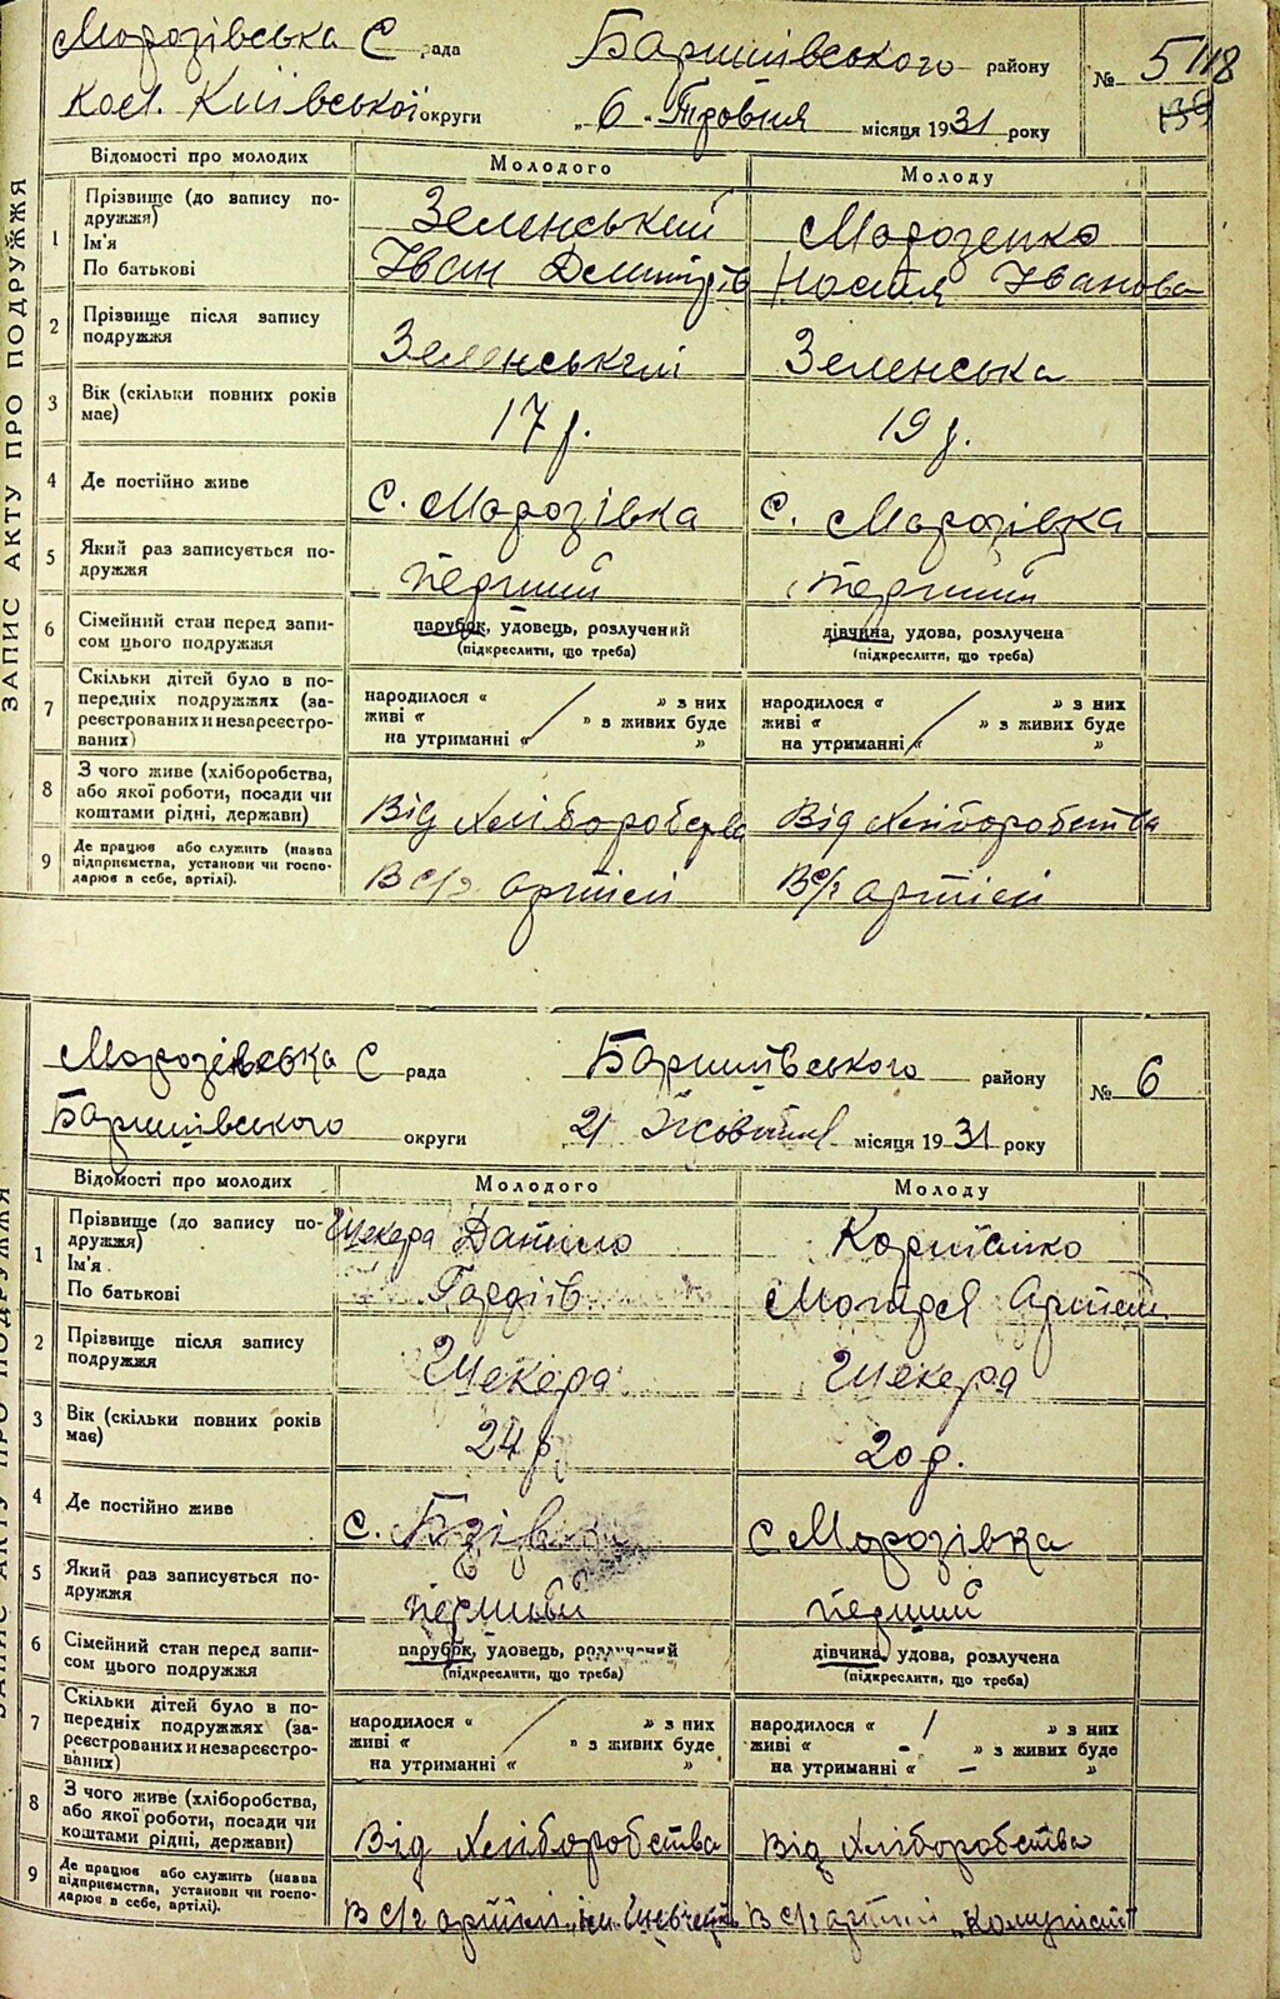 Морозівська С рада Баришівського району № 5 118
Кол. Київської округи „ 6 “ Травня місяця 1931 року 139
ЗАПИС АКТУ ПРО ПОДРУЖЖЯ
Відомості про молодих Молодого Молоду
1 Прізвище (до запису по-
дружжя) Зеленський Морозенко
Ім'я
По батькові Іван Дмитрів Настя Іванова
2 Прізвище після запису
подружжя Зеленський Зеленська
3 Вік (скільки повних років
має) 17 р. 19 р.
4 Де постійно живе С. Морозівка С. Морозівка
5 Який раз записується по-
дружжя перший перший
6 Сімейний стан перед запи-
сом цього подружжя
парубок, удовець, розлучений дівчина, удова, розлучена
(підкреслити, що треба) (підкреслити, що треба)
7 Скільки дітей було в по-
передніх подружжях (за-
реєстрованих и незареєстро-
ваних)
народилося « » з них народилося « » з них
живі « » з живих буде живі « » з живих буде
на утриманні « » на утриманні « »
8 З чого живе (хліборобства,
або якої роботи, посади чи
коштами рідні, держави) Від Хліборобства Від Хліборобства
9 Де працює або служить (назва
підприємства, установи чи госпо-
дарює в себе, артілі). В с/г артілі В с/г артілі
Морозівська С рада Баришівського району № 6
Баришівського округи 21 Жовтня місяця 1931 року
Відомості про молодих Молодого Молоду
1 Прізвище (до запису по-
дружжя) Шекера Данило
Ім'я
По батькові Гордіїв Мотря Артем
2 Прізвище після запису
подружжя Шекера Шекера
3 Вік (скільки повних років
має) 24 р. 20 р.
4 Де постійно живе с. С Морозівка
5 Який раз записується по-
дружжя первый перший
6 Сімейний стан перед запи-
сом цього подружжя
парубок, удовець, розлучений дівчина, удова, розлучена
(підкреслити, що треба) (підкреслити, що треба)
7 Скільки дітей було в по-
передніх подружжях (за-
реєстрованих и незареєстро-
ваних)
народилося « » з них народилося « » з них
живі « » з живих буде живі « – » з живих буде
на утриманні « » на утриманні « – »
8 З чого живе (хліборобства,
або якої роботи, посади чи
коштами рідні, держави) Від Хліборобства Від Хліборобства
9 Де працює або служить (назва
підприємства, установи чи госпо-
дарює в себе, артілі). В с/г артілі „ім. Шевченк В с/г артілі „Комуніст"